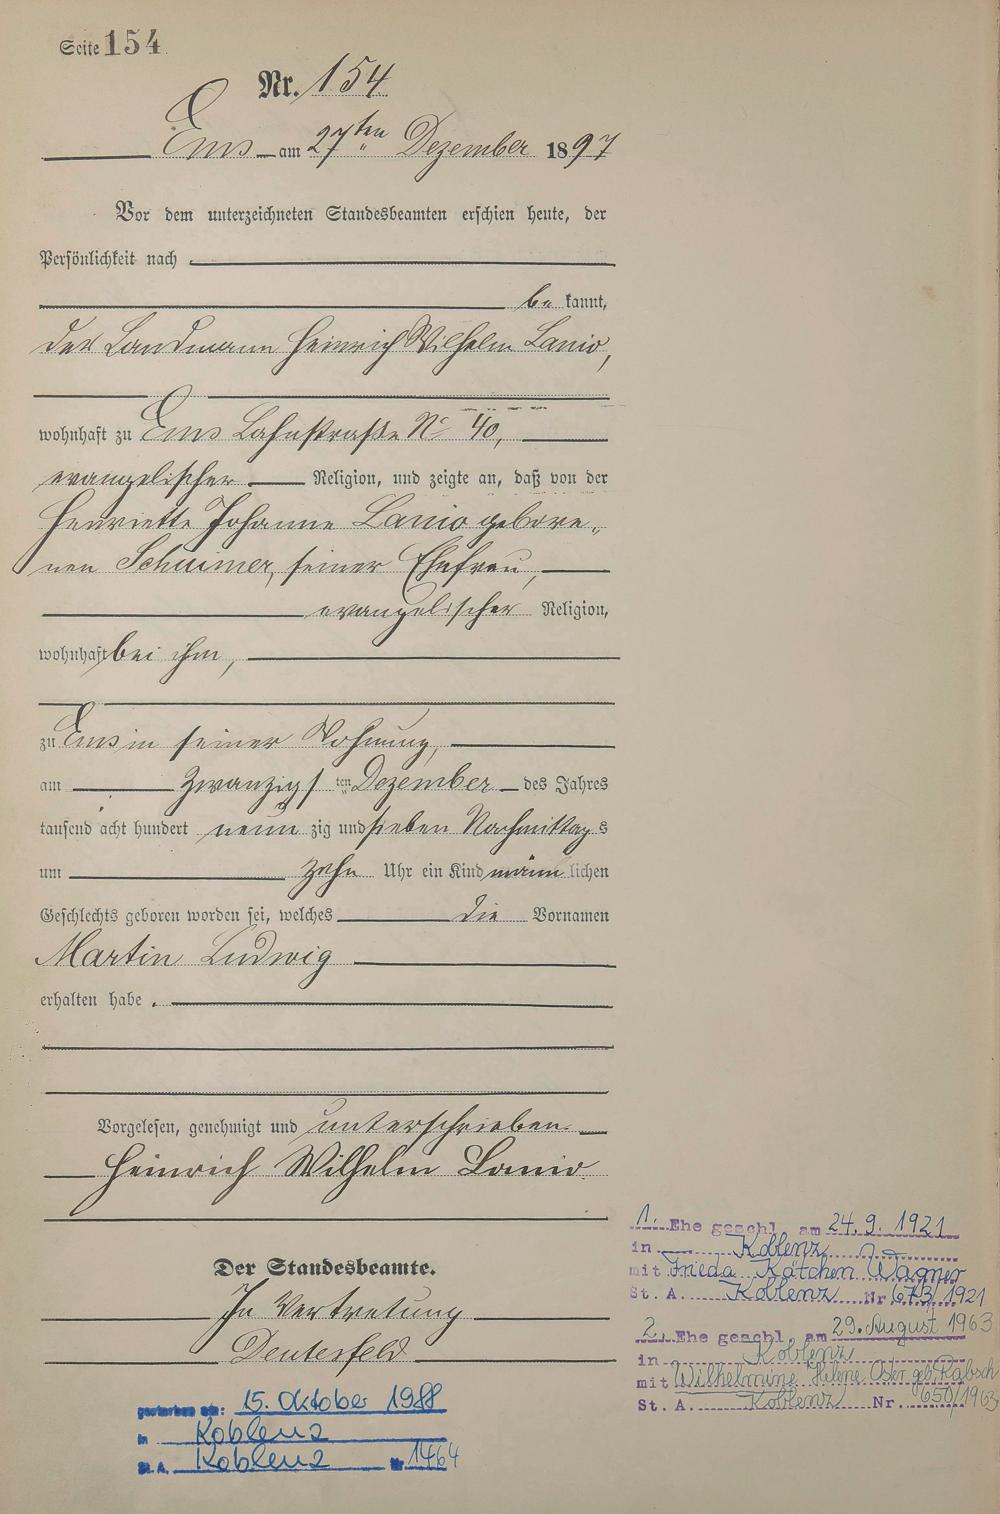 Seite 154
Nr. 154
Ems am 27ten Dezember 1897
Vor dem unterzeichneten Standesbeamten erschien heute, der
Persönlichkeit nach
be kannt,
der Landmann Heinrich Wilhelm Lanio,
wohnhaft zu Ems Lahnstraße No 40,
evangelischer Religion, und zeigte an, daß von der
Henriette Johanne Lanio gebore„
nen seiner Ehefrau,
evangelischer Religion,
wohnhaft bei ihm,
zu Ems in seiner Wohnung,
am zwanzigsten Dezember des Jahres
tausend acht hundert neun zig und sieben Nachmittags
um zehn Uhr ein Kind männlichen
Geschlechts geboren worden sei, welches die Vornamen
Martin Ludwig
erhalten habe.
Vorgelesen, genehmigt und unterschrieben.
Heinrich Wilhelm Lanio
Der Standesbeamte.
In Vertretung
Deutesfeld
gestorben am: 15. Oktober 1988
in Koblenz
St. A. Koblenz Nr 1464
1. Ehe geschl. am 24.9.1921
in Koblenz
mit Frieda Kätchen Wagner
St. A. Koblenz Nr 673/1921
2. Ehe geschl. am 29. August 1963
in Koblenz
mit Wilhelmine Helene geb.
St. A. Koblenz Nr. 650/1963